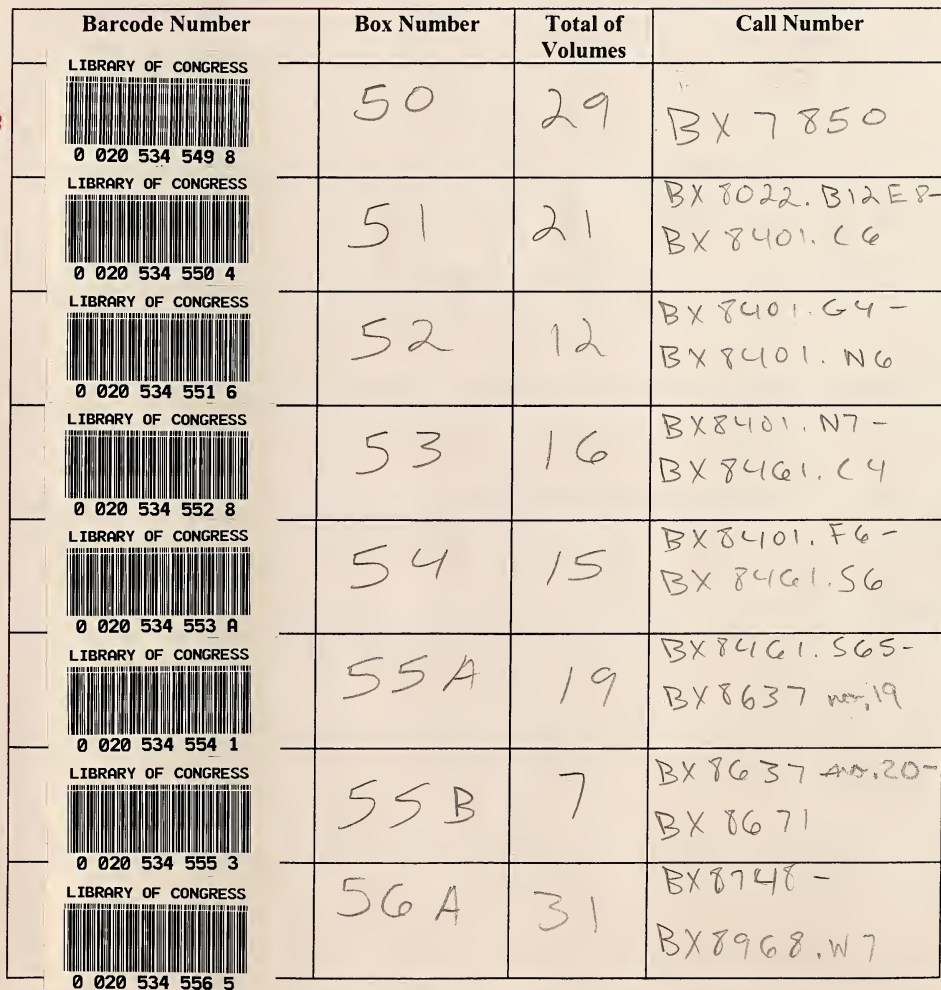 Barcode Number Box Number Total of Volumes Call Number
LIBRARY OF CONGRESS
0 020 534 549 8
50 29 BX 7850
LIBRARY OF CONGRESS
0 020 534 550 4
51 21 BX 8022. B12 E8-
BX 8401. C6
LIBRARY OF CONGRESS
0 020 534 551 6
52 12 BX 8401. G4-
BX 8401. N6
LIBRARY OF CONGRESS
0 020 534 552 8
53 16 BX8401. N7-
BX 8461. C4
LIBRARY OF CONGRESS
0 020 534 553 A
54 15 BX8401. F6-
BX 8461. S6
LIBRARY OF CONGRESS
0 020 534 554 1
55A 19 BX8461. S65-
BX8637 no. 19
LIBRARY OF CONGRESS
0 020 534 555 3
55B 7 BX 8637 no. 20-
BX 8671
LIBRARY OF CONGRESS
0 020 534 556 5
56A 31 BX8748-
BX8968. W7